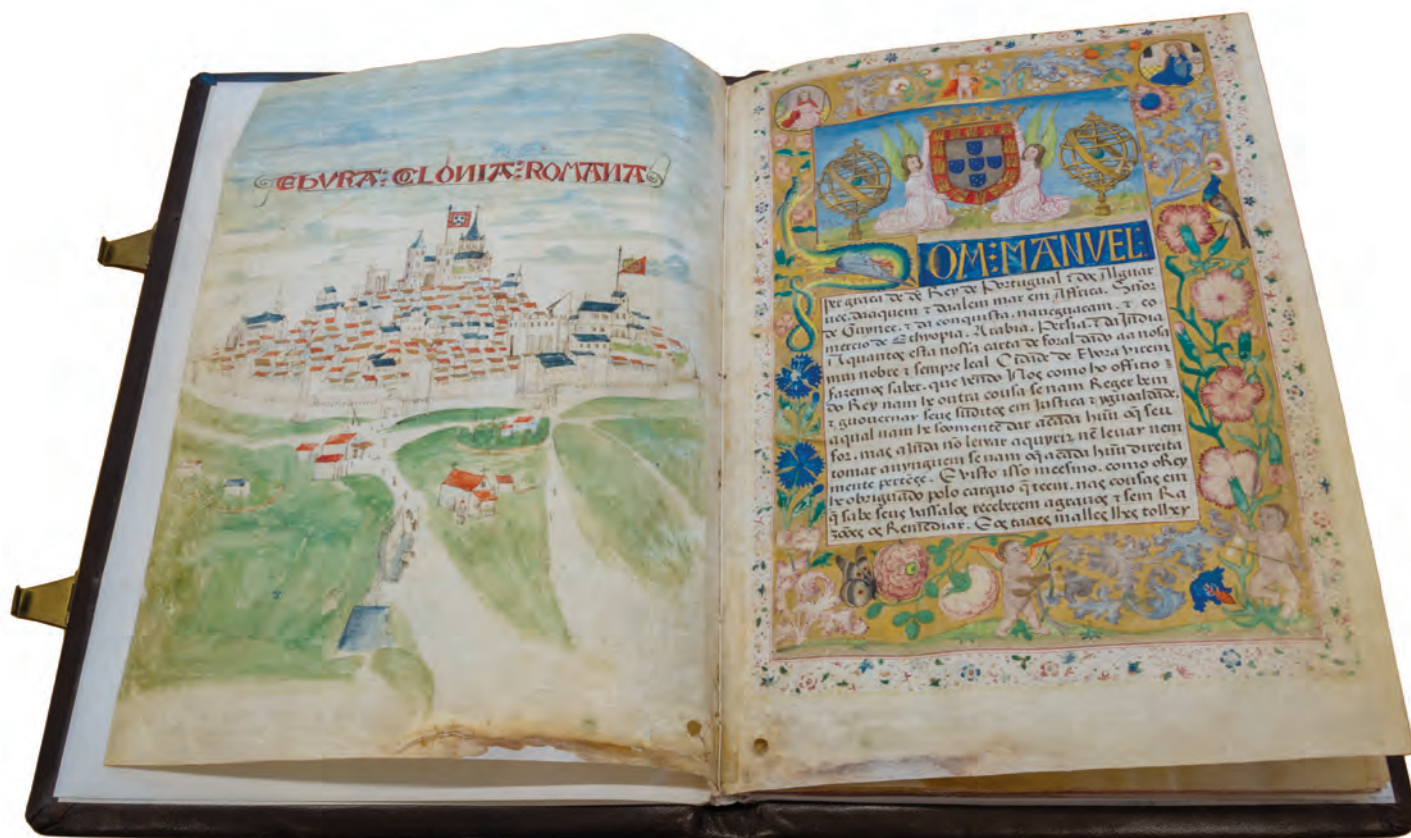 EBVRA: COLONIA: ROMANA
DOM: MANVEL:
per graça de ds Rey de Portugual τ dos Alguar
ues, daaquem τ dalem mar em Affrica. Señor
de Guynee. τ da conquista. naueguaçam. τ co
mercio de Ethyopia. Arabia. Persia. τ da India
A quantos esta nossa carta de foral dado aa nosa
mui nobre τ sempre leal Cidade de Euora virem
fazemos saber. que vendo Nos como ho officio
do Rey nam he outra cousa se nam Reger bem
τ guouernar seus suditos em Justiça τ ygualdade.
a qual nam he soomente dar a cada hũu o q̃ seu
for, mas ainda nõ leixar aquyrir nẽ leuar nem
tomar a nynguem se nam o q̃ a cada hũu direita
mente pertẽçe. E visto isso meesmo. como o Rey
he obriguado polo carguo q̃ teem. nas cousas em
q̃ sabe seus vassalos receberem agrauos τ sem Ra
zões os Remediar. E os taaes malles lhes tolher